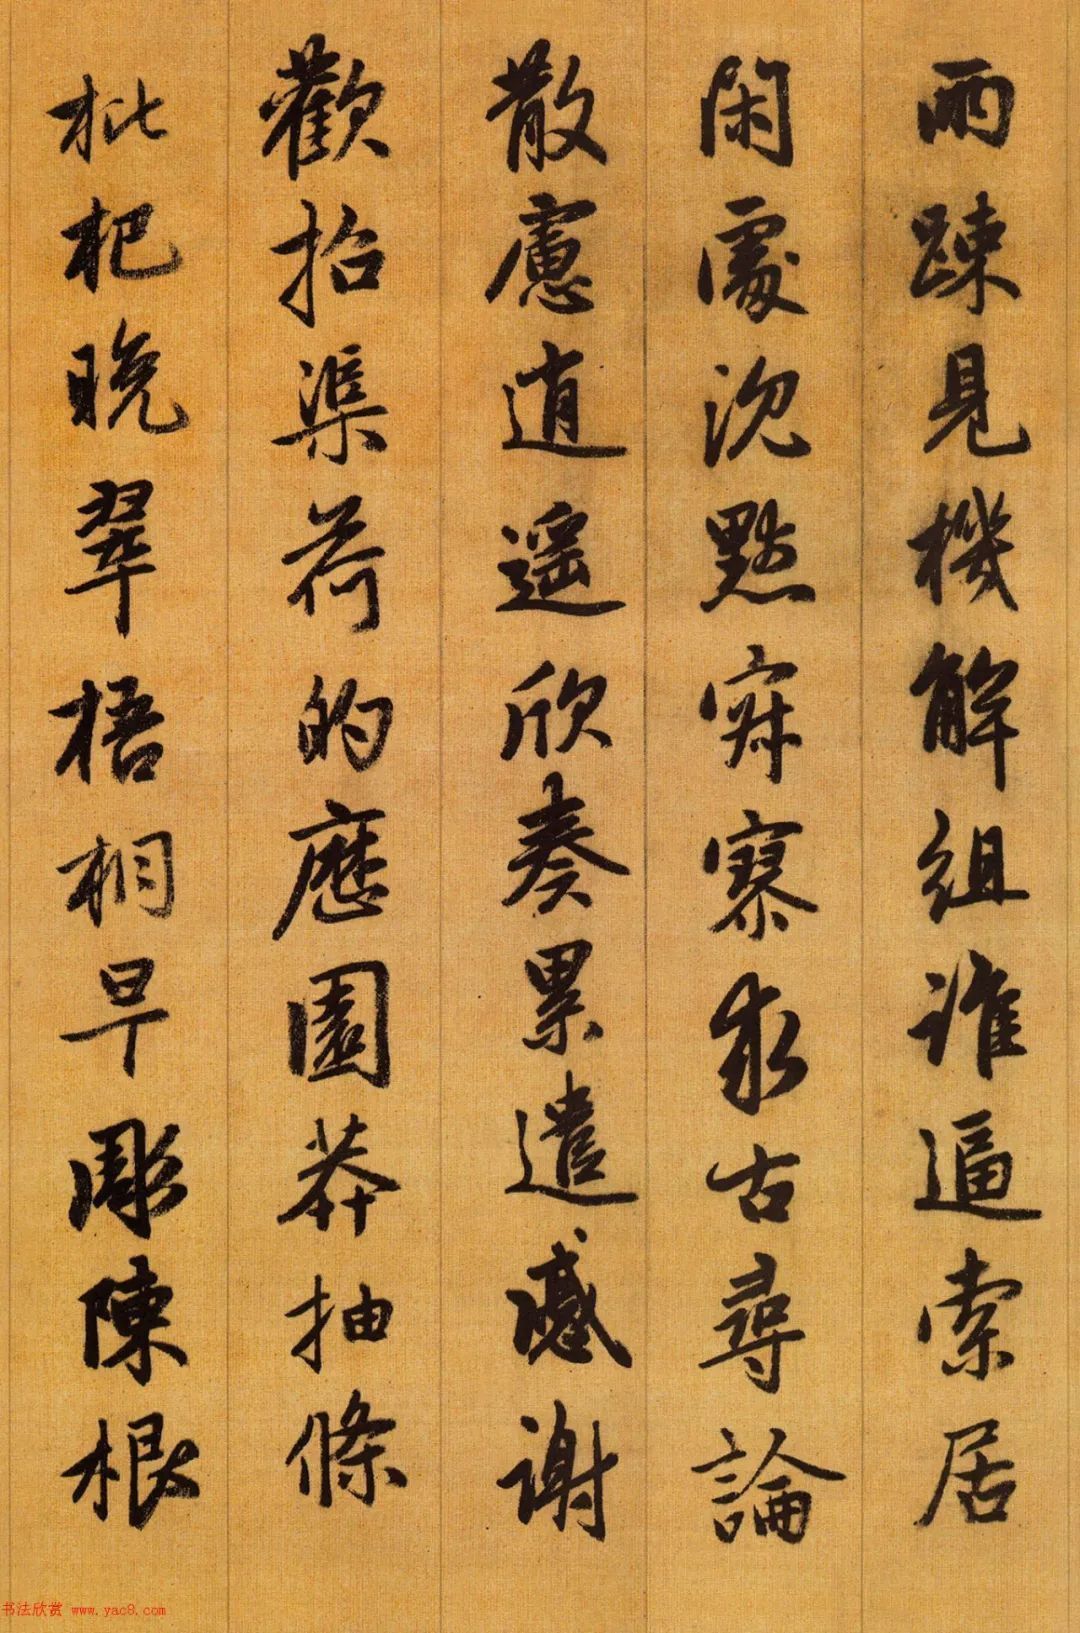 兩踈見機解組誰逼索居
閑處沉默寂寥求古尋論
散慮逍遙欣奏累遣慼謝
歡招渠荷的歷園莽抽條
枇杷晚翠梧桐早彫陳根
书法欣赏 www.yac8.com